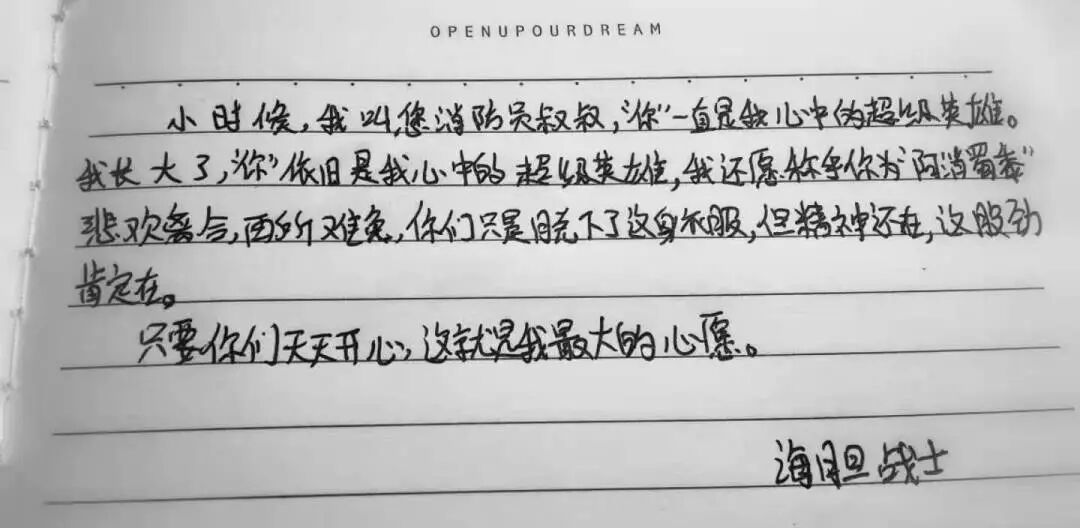 OPENUPOURDREAM
小时候，我叫您消防员叔叔，“你”一直是我心中的超级英雄。
我长大了，“你”依旧是我心中的超级英雄，我还愿称乎你为“阿消蜀黍”
悲欢离合，再所难免，你们只是脱下了这身衣服，但精神还在，这股劲
肯定在。
只要你们天天开心，这就是我最大的心愿。
海胆战士